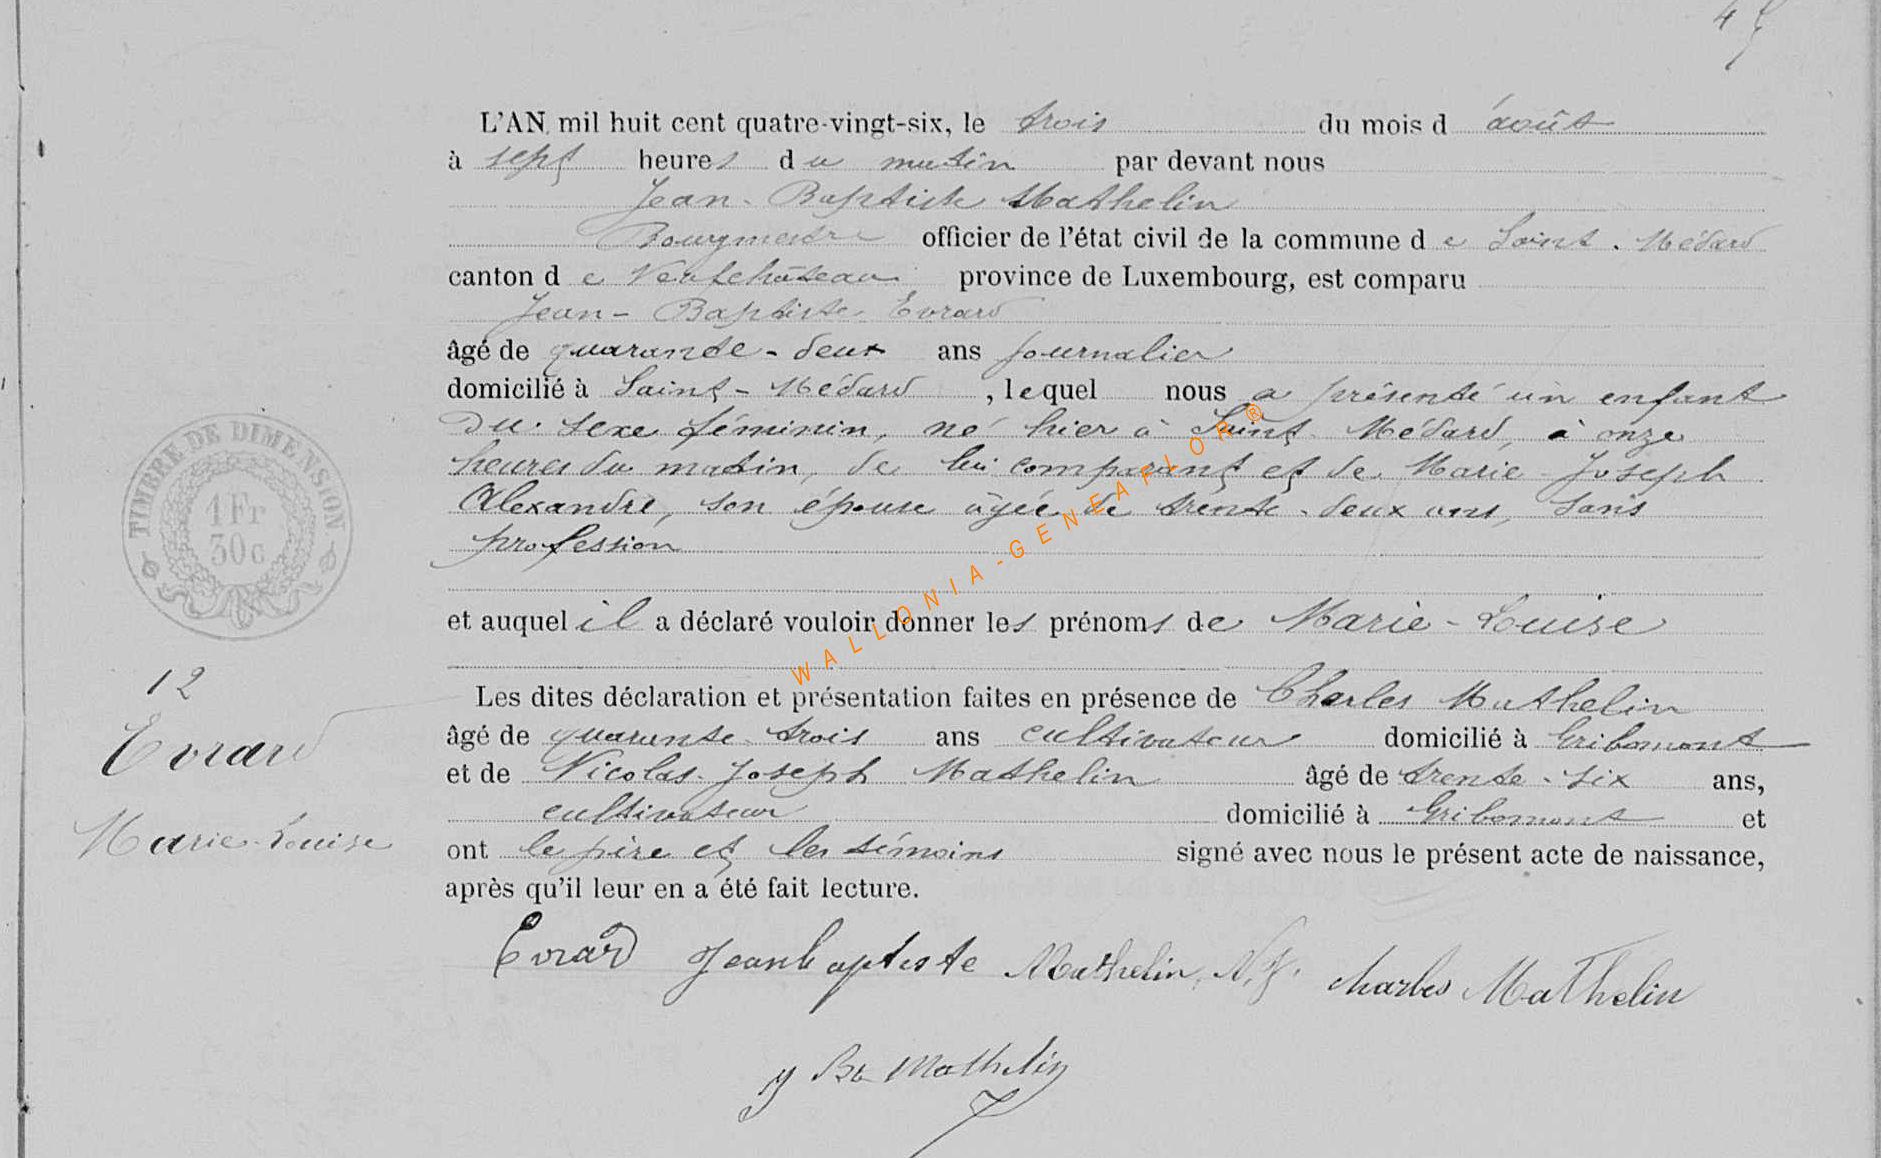 45
L'AN mil huit cent quatre-vingt-six, le trois du mois d'août
à sept heures du matin par devant nous
Jean-Baptiste Mathelin
Bourgmestre officier de l'état civil de la commune de Saint-Médard
canton de Neufchâteau province de Luxembourg, est comparu
Jean-Baptiste Evrard
âgé de quarante-deux ans journalier
domicilié à Saint-Médard, lequel nous a présenté un enfant
du sexe féminin, né hier à Saint-Médard, à onze
heures du matin, de lui comparant et de Marie-Joseph
Alexandre, son épouse âgée de trente-deux ans, sans
profession
et auquel il a déclaré vouloir donner les prénoms de Marie-Louise
Les dites déclaration et présentation faites en présence de Charles Mathelin
âgé de quarante-trois ans cultivateur domicilié à Gribomont
et de Nicolas-Joseph Mathelin âgé de trente-six ans,
cultivateur domicilié à Gribomont et
ont le père et les témoins signé avec nous le présent acte de naissance,
après qu'il leur en a été fait lecture.
TIMBRE DE DIMENSION
1 Fr
30 c
12
Evrard
Marie-Louise
Evrard Jeanbaptiste Mathelin, N.J. Charles Mathelin
J Bte Mathelin
WALLONIA-GENEAFLOR®